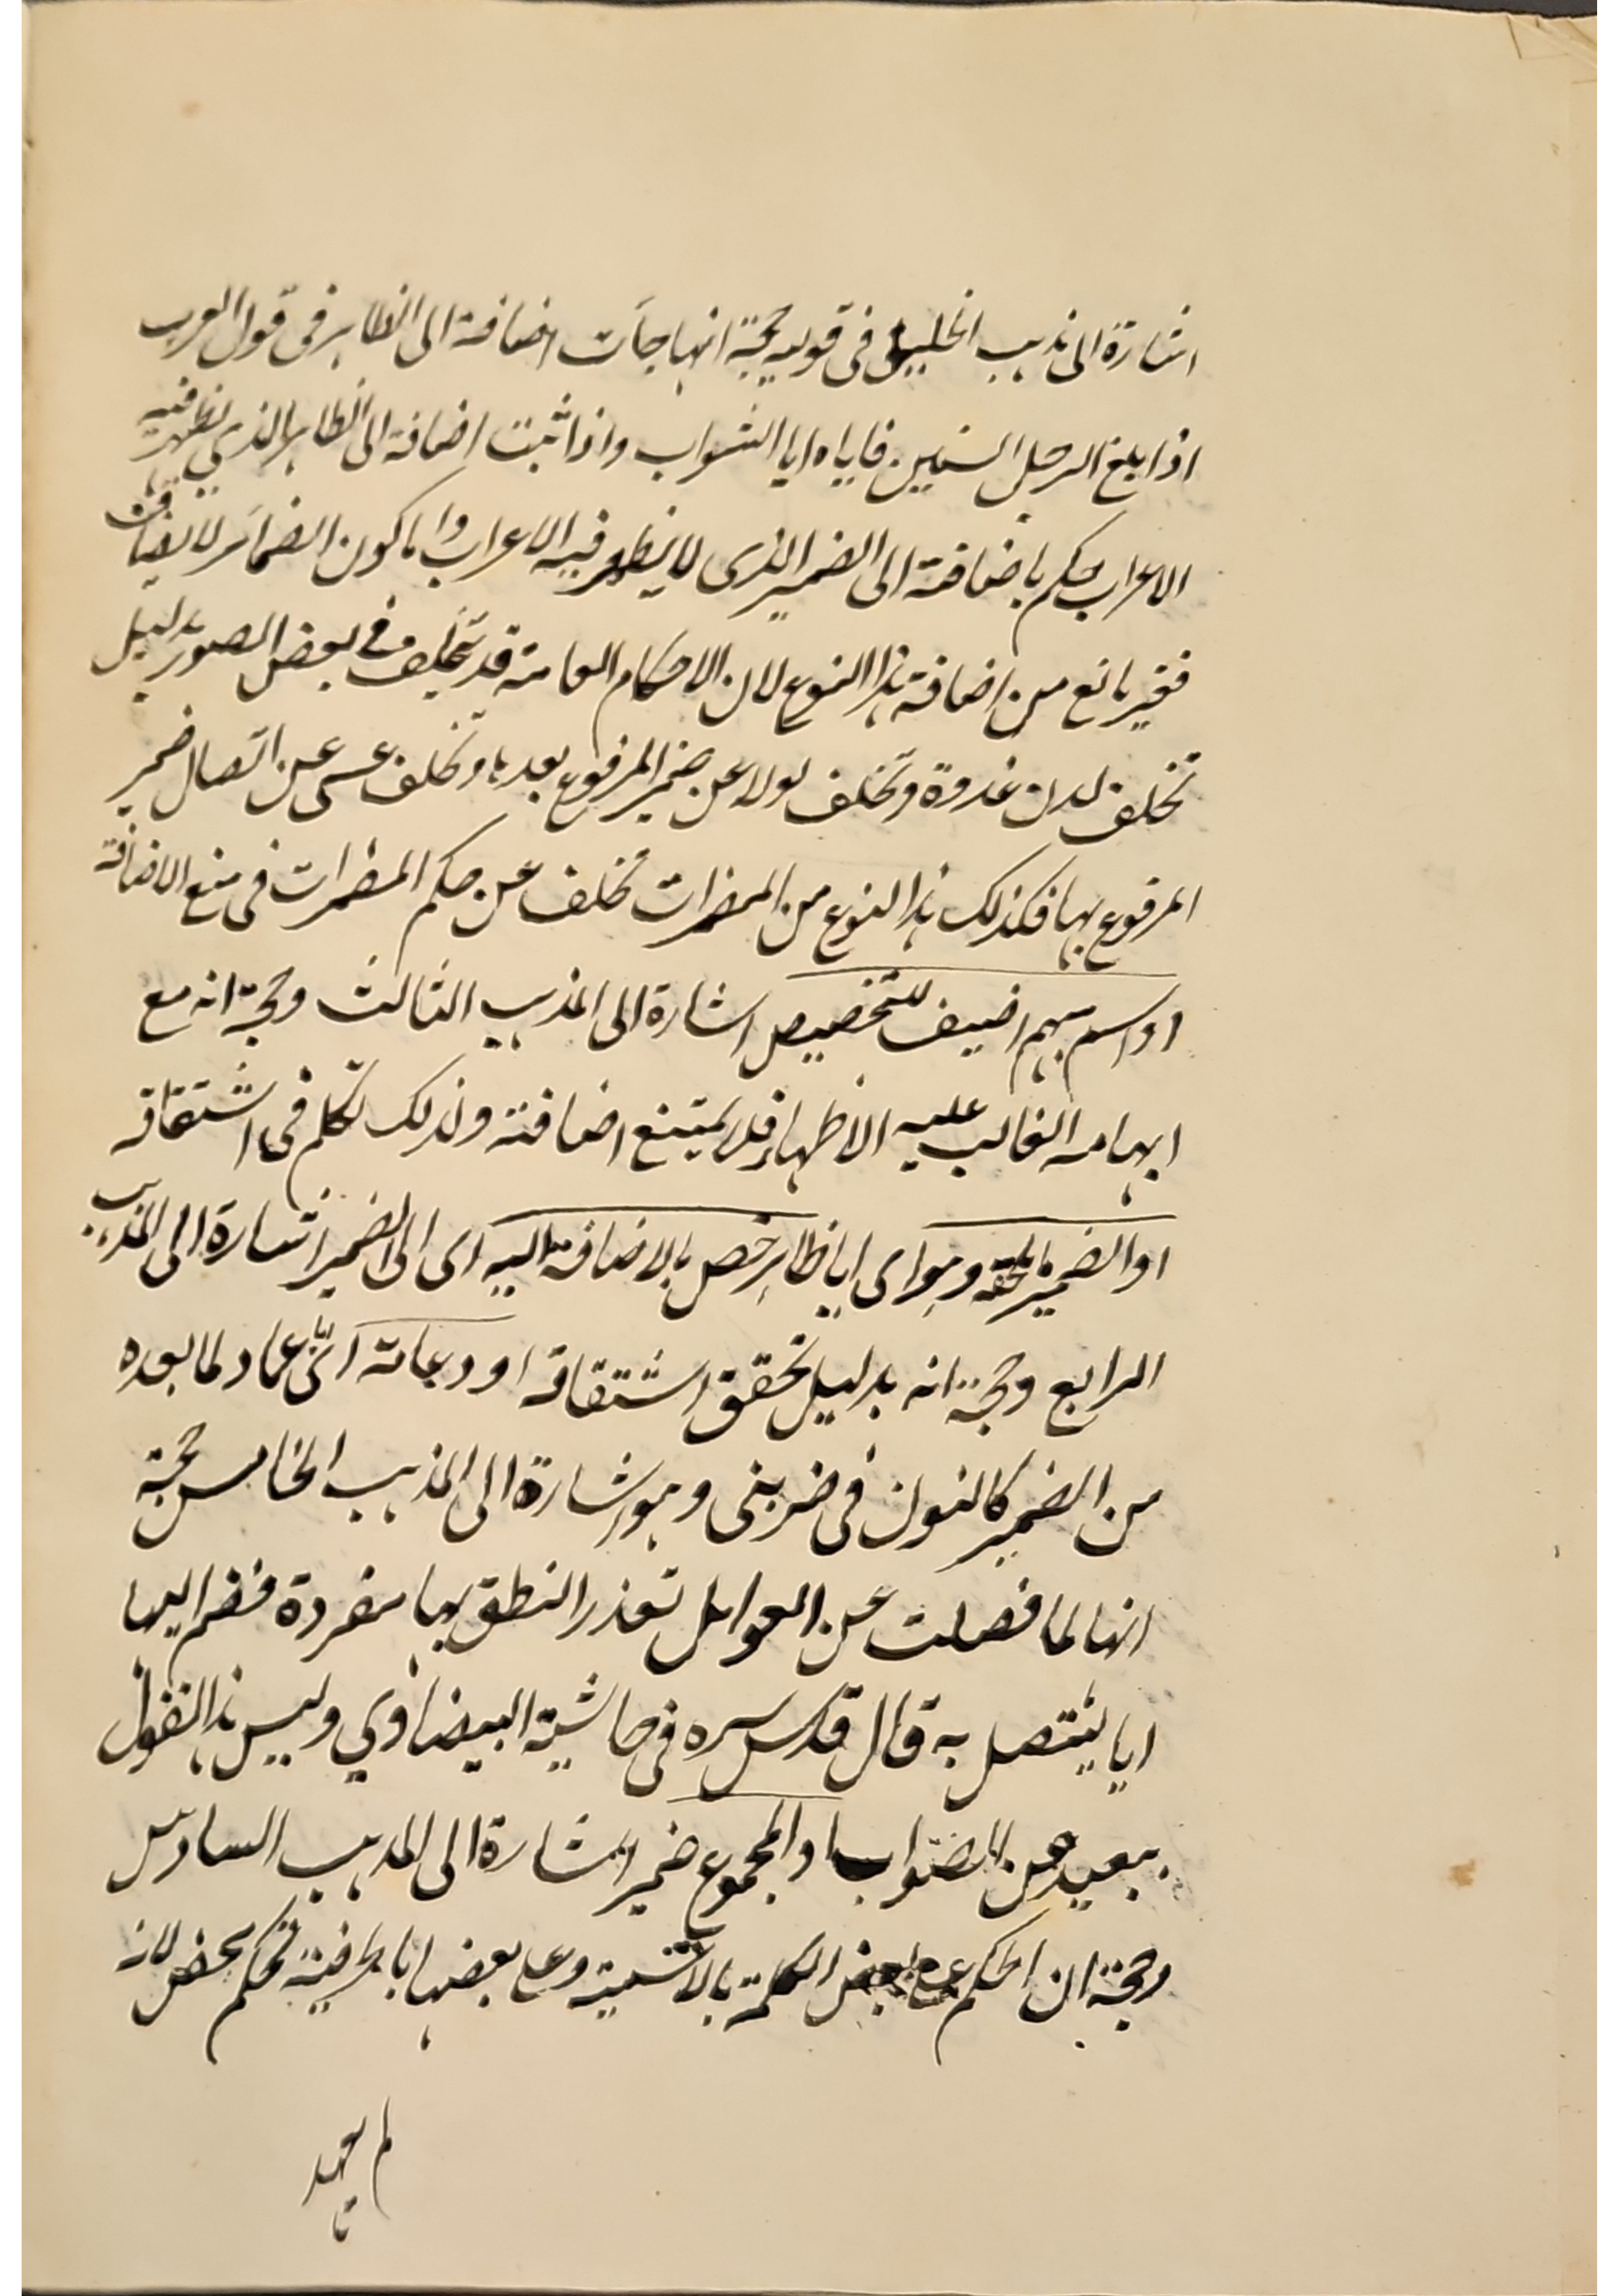 اشارة الى مذهب الخليل فى قوله حجة انها جآءت اضافة الى الظاهر فى قول العرب
اذا بلغ الرجل الستين فاياه وايا الشواب واذا ثبت اضافة الى الظاهر الذي يظهر فيه
الاعراب يحكم باضافته الى الضمير الذى لا يظهر فيه الاعراب واما كون الضمائر لا يضاف
فغير مانع من اضافة هذا النوع لان الاحكام العامة قد يتخلف في بعض الصور بدليل
تخلف لدن غدوة وتخلف لولا عن ضمير المرفوع بعدها وتخلف عسى عن اتصال ضمير
المرفوع بها فكذلك هذا النوع من المضمرات تخلف عن حكم المضمرات فى منع الاضافة
او اسم مبهم اضيف للتخصيص اشارة الى المذهب الثالث وحجة انه مع
ابهامه الغالب عليه الاظهار فلا يمتنع اضافته ولذلك تكلم فى اشتقاقه
او الضمير ما لحقه وهو اى ايا ظاهر خص بالاضافة اليه اى الى الضمير اشارة الى المذهب
الرابع وحجة انه بدليل تحقق اشتقاقه او دعامة اى ايا عماد لما بعده
من الضمير كالنون فى ضربنى وهو اشارة الى المذهب الخامس حجة
انها لما فصلت عن العوامل تعذر النطق بها مفردة فضم اليها
ايا ليتصل به قال قدس سره فى حاشية البيضاوي وليس هذا القول
ببعيد عن الصواب او المجموع ضمير اشارة الى المذهب السادس
وحجة ان الحكم على بعض الكلمة بالاسمية وعلى بعضها بالحرفية تحكم محض لانه
لم يعهد